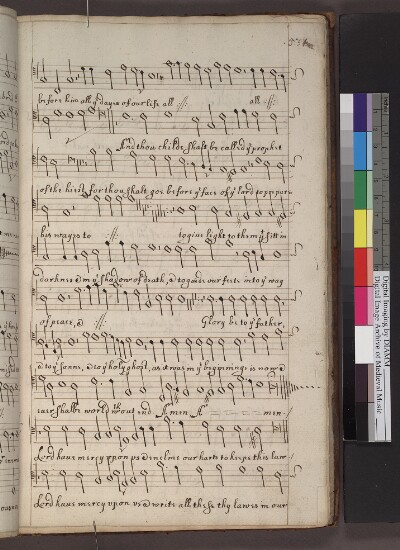 before him all yͤ dayes of our life all :||: all :||:
And thou childe shalt be called yͤ prophet
of the hiest for thou shalt goe before yͤ face of yͤ lord to prepare
his wayes to :||: to giue light to them yͭ sitt in
darknes & in yͤ shadow of death, & to guide our feete into yͤ way
of peace, & :||: Glory be to yͤ father,
& to yͤ sonne, & to yͤ holy ghost, as it was in yͤ beginninge is now &
euer shalbe world wᵗout end Amen A men
Lord haue mercy vpon vs & incline our harts to keepe this law
Lord haue mercy vpon vs & write all these thy lawes in our
Digital Imaging by DIAMM
Digital Image Archive of Medieval Music